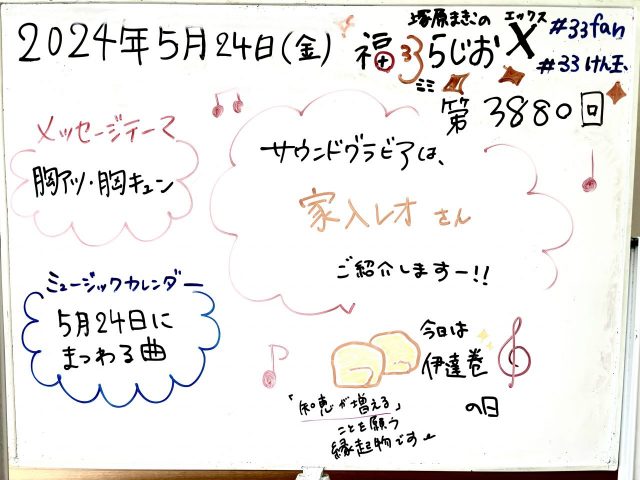 2024年5月24日(金)
塚原まきこの
福33らじおX
ミミ
エックス
#33fan
#33けん玉
第3880回
メッセージテーマ
胸アツ・胸キュン
サウンドグラビアは、
家入レオさん
ご紹介しますー!!
ミュージックカレンダー
5月24日に
まつわる曲
今日は
伊達巻
の日
「知恵が増える」
ことを願う
縁起物です